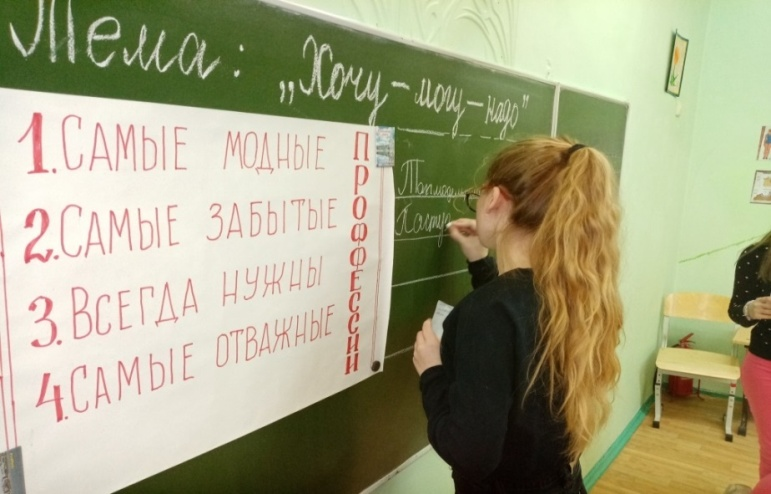 Тема: „Хочу-могу-надо"
1. САМЫЕ МОДНЫЕ
2. САМЫЕ ЗАБЫТЫЕ
3. ВСЕГДА НУЖНЫ
4. САМЫЕ ОТВАЖНЫЕ
ПРОФЕССИИ
Пасту